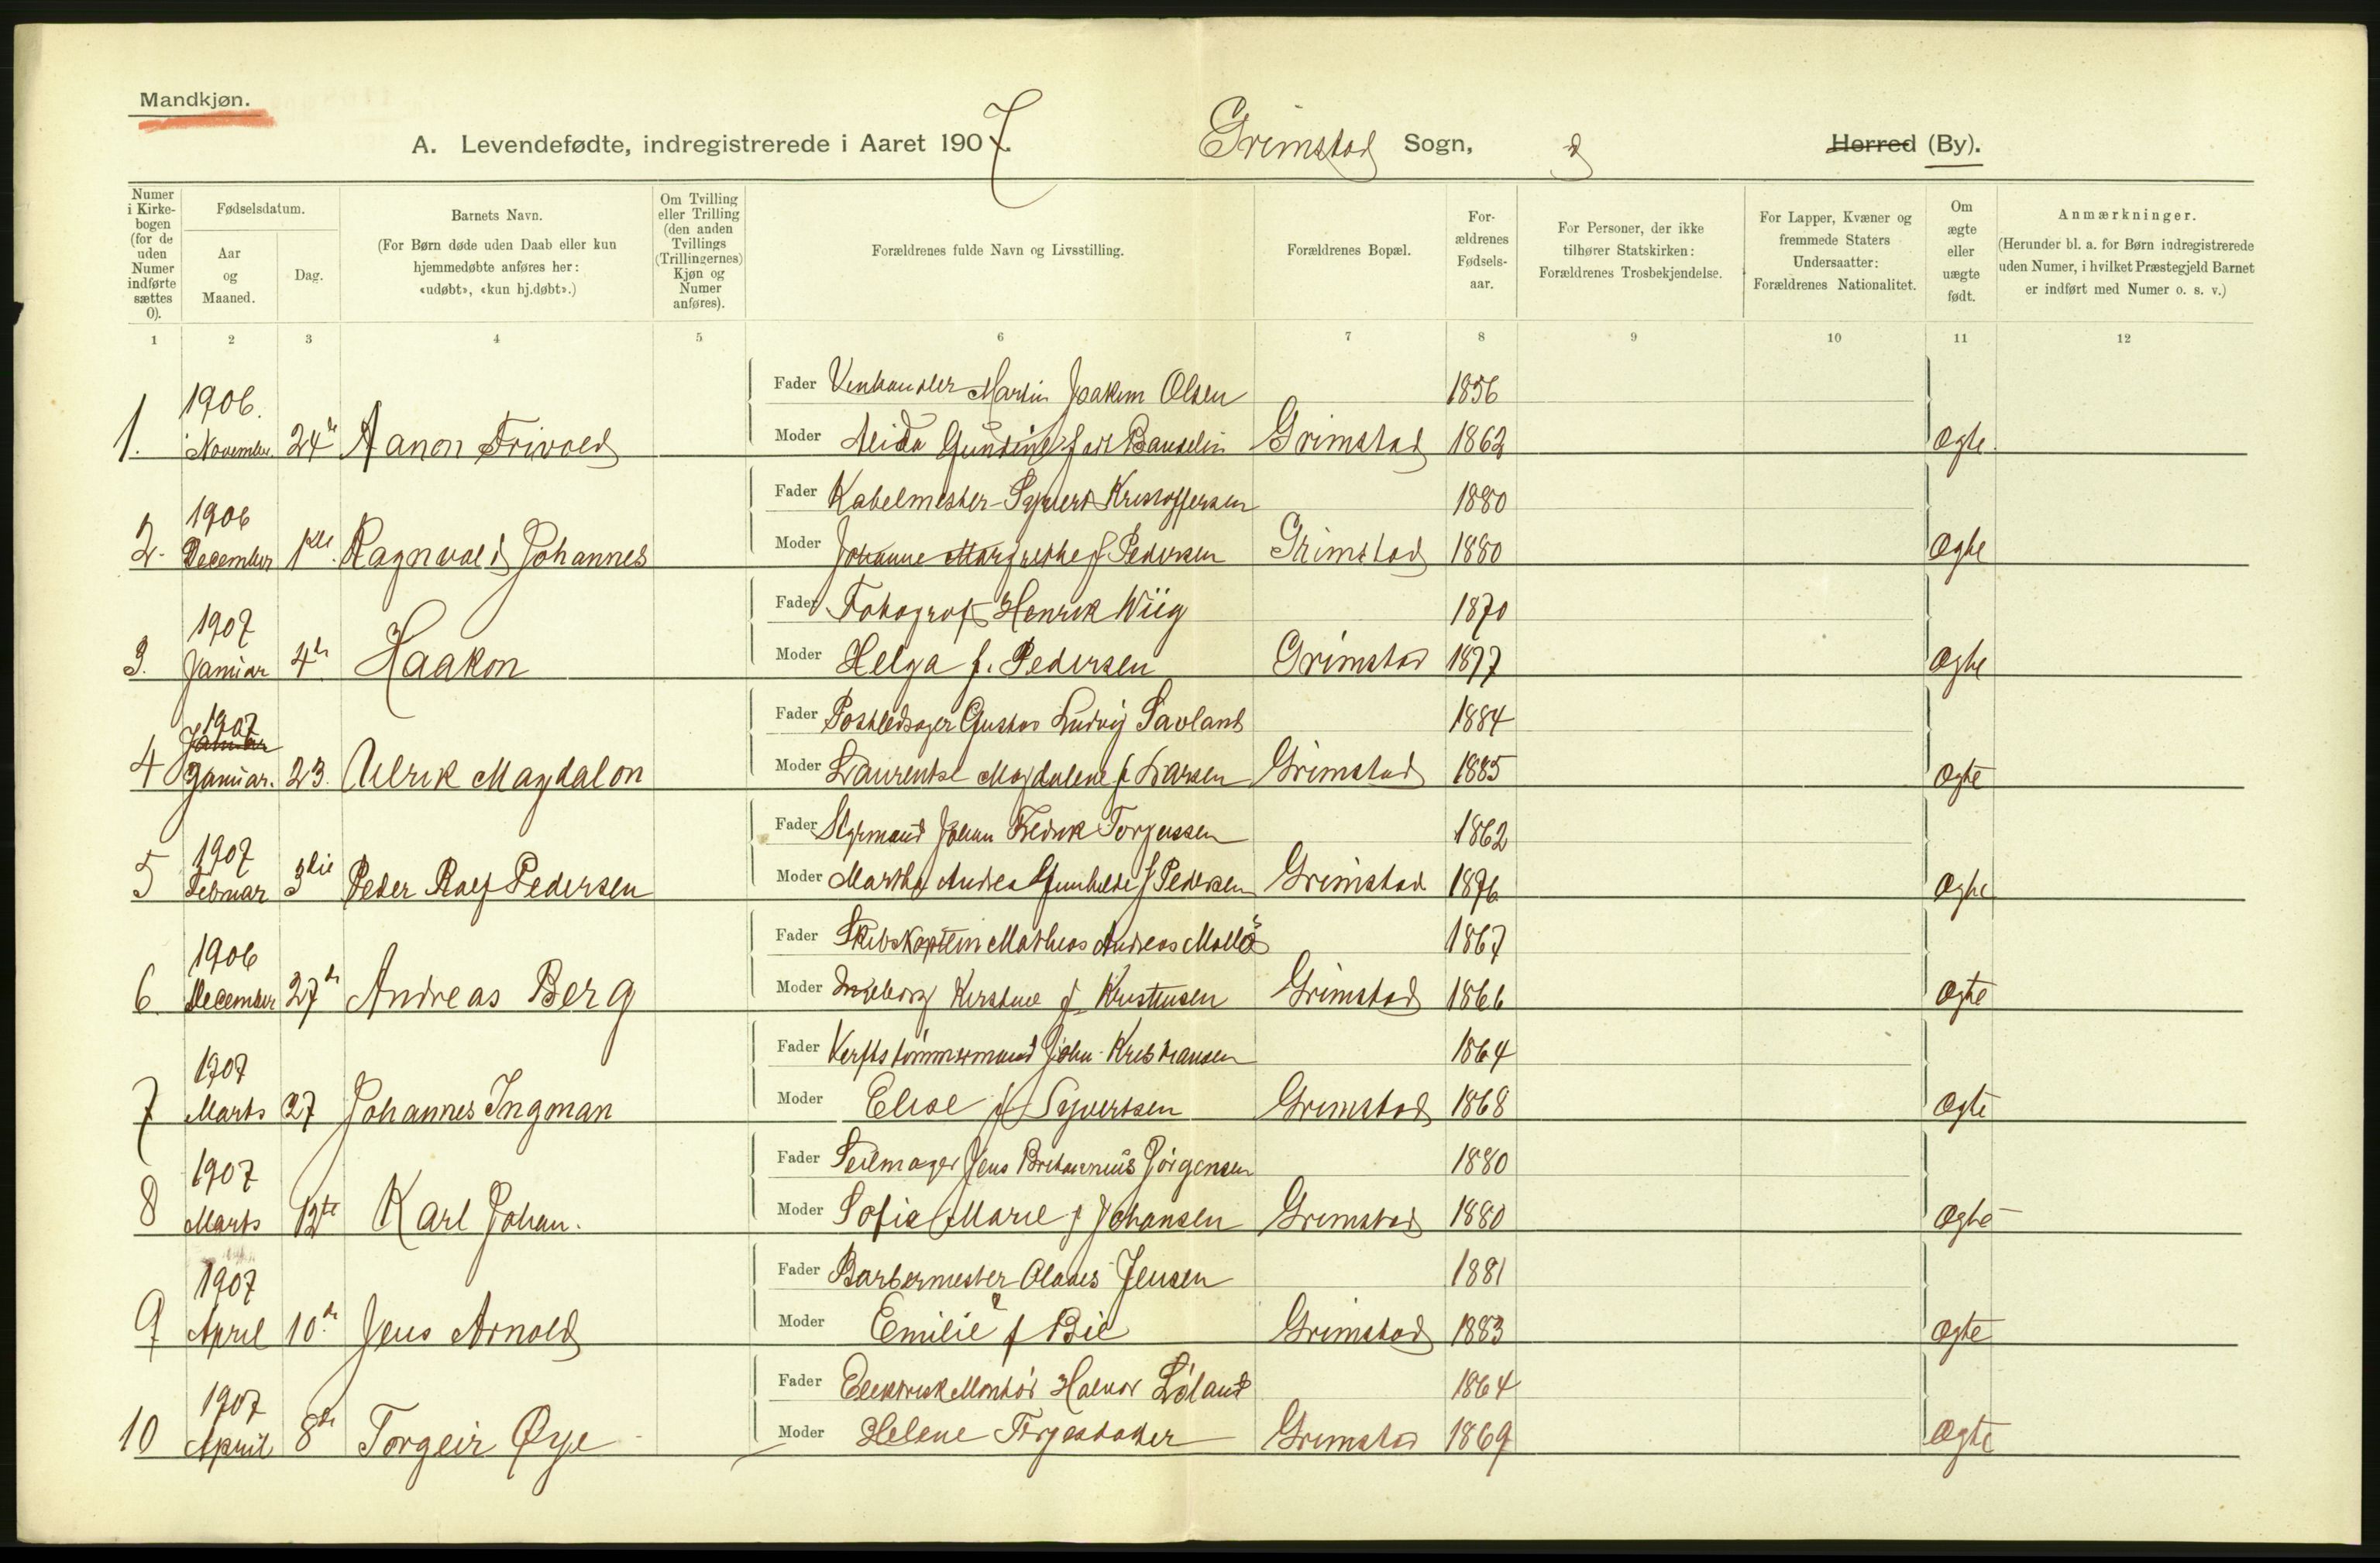 Mandkjøn.
A. Levendefødte, indregistrerede i Aaret 1907. Grimstad Sogn, Herred (By).
Numer i Kirkebogen (for de uden Numer indførte sættes 0).
Fødselsdatum.
Aar og Maaned.
Dag.
Barnets Navn.
(For Børn døde uden Daab eller kun hjemmedøbte anføres her: «udøbt», «kun hj.døbt».)
Om Tvilling eller Trilling (den anden Tvillings (Trillingernes) Kjøn og Numer anføres).
Forældrenes fulde Navn og Livsstilling.
Forældrenes Bopæl.
Forældrenes Fødselsaar.
For Personer, der ikke tilhører Statskirken: Forældrenes Trosbekjendelse.
For Lapper, Kvæner og fremmede Staters Undersaatter: Forældrenes Nationalitet.
Om ægte eller uægte født.
Anmærkninger.
(Herunder bl. a. for Børn indregistrerede uden Numer, i hvilket Præstegjeld Barnet er indført med Numer o. s. v.)
1 2 3 4 5 6 7 8 9 10 11 12
1906. Fader Martin Joakim Olsen 1856
1. November 24de Aanon Trivold Moder Grimstad 1862 Ægte
1906 Fader Kabelmester Syvert Kristoffersen 1880
2. December 1ste Ragnvald Johannes Moder Johanne Margrethe f Pedersen Grimstad 1880 Ægte
1907 Fader Fotograf Henrik Wiig 1870
3. Januar 4de Haakon Moder Helga f. Pedersen Grimstad 1877 Ægte
1907 Januar Fader Gustav Ludvig Savland 1884
4 Januar. 23. Ulrik Magdalon Moder Laurentse Magdalene f Larsen Grimstad 1885 Ægte
1907 Fader Styrmand Johan Fredrik Torjussen 1862
5 Februar 3die Peder Rolf Pedersen Moder Martha Andrea Gunhilde f Pedersen Grimstad 1876 Ægte
1906 Fader Skibskaptein Mathias Andreas Mollö 1867
6. December 27de Andreas Berg Moder Ingeborg Kirstine f Kristensen Grimstad 1866 Ægte
1907 Fader Verftstömmermand John Kristiansen 1864
7 Marts 27 Johannes Ingman Moder Elise f Syvertsen Grimstad 1868 Ægte
1907 Fader Seilmager Jens Jörgensen 1880
8 Marts 12te Karl Johan. Moder Sofie Marie f Johansen Grimstad 1880 Ægte
1907 Fader Barbermester Jensen 1881
9 April 10de Jens Arnold Moder Emilie f Bie Grimstad 1883 Ægte
1907 Fader Elektrisk Montör Halvor Löland 1864
10 April 8de Torgeir Øye Moder Helene Grimstad 1869 Ægte